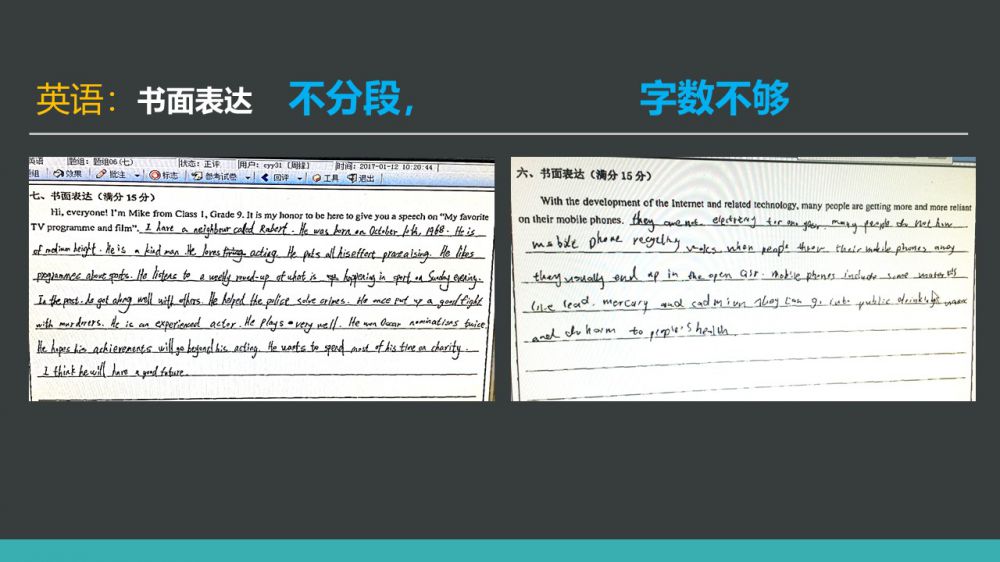 英语：书面表达 不分段， 字数不够
英语 题组：题组06(七) 状态：正评 用户：cyy31 [周锋] 时间：2017-01-12 10:20:44
题组 效果 批注 标志 参考试卷 回评 工具 退出
七、书面表达（满分 15 分）
Hi, everyone! I'm Mike from Class 1, Grade 9. It is my honor to be here to give you a speech on “My favorite
TV programme and film”. I have a neighbour called Robert. He was born on October 1968. He is
of medium height. He is a kind man. He loves acting. He puts all his effort He likes
programmes above sports. He listens to a weekly round-up of what is happening in sport on Sunday evening.
In the past, do get along well with others. He helped the police solve crimes. He once put up a good fight
with murderers. He is an experienced actor. He plays very well. He won Oscar nominations twice.
He hopes his achievements will go beyond his acting. He wants to spend most of his time on charity.
I think he will have a good future.
六、书面表达（满分 15 分）
With the development of the Internet and related technology, many people are getting more and more reliant
on their mobile phones. they are not many people do not how
mobile phone recycling works. when people throw their mobile phones away
they usually end up in the open air. mobile phones include some
like lead, mercury and cadmium they can go into public drinking
and do harm to people's health